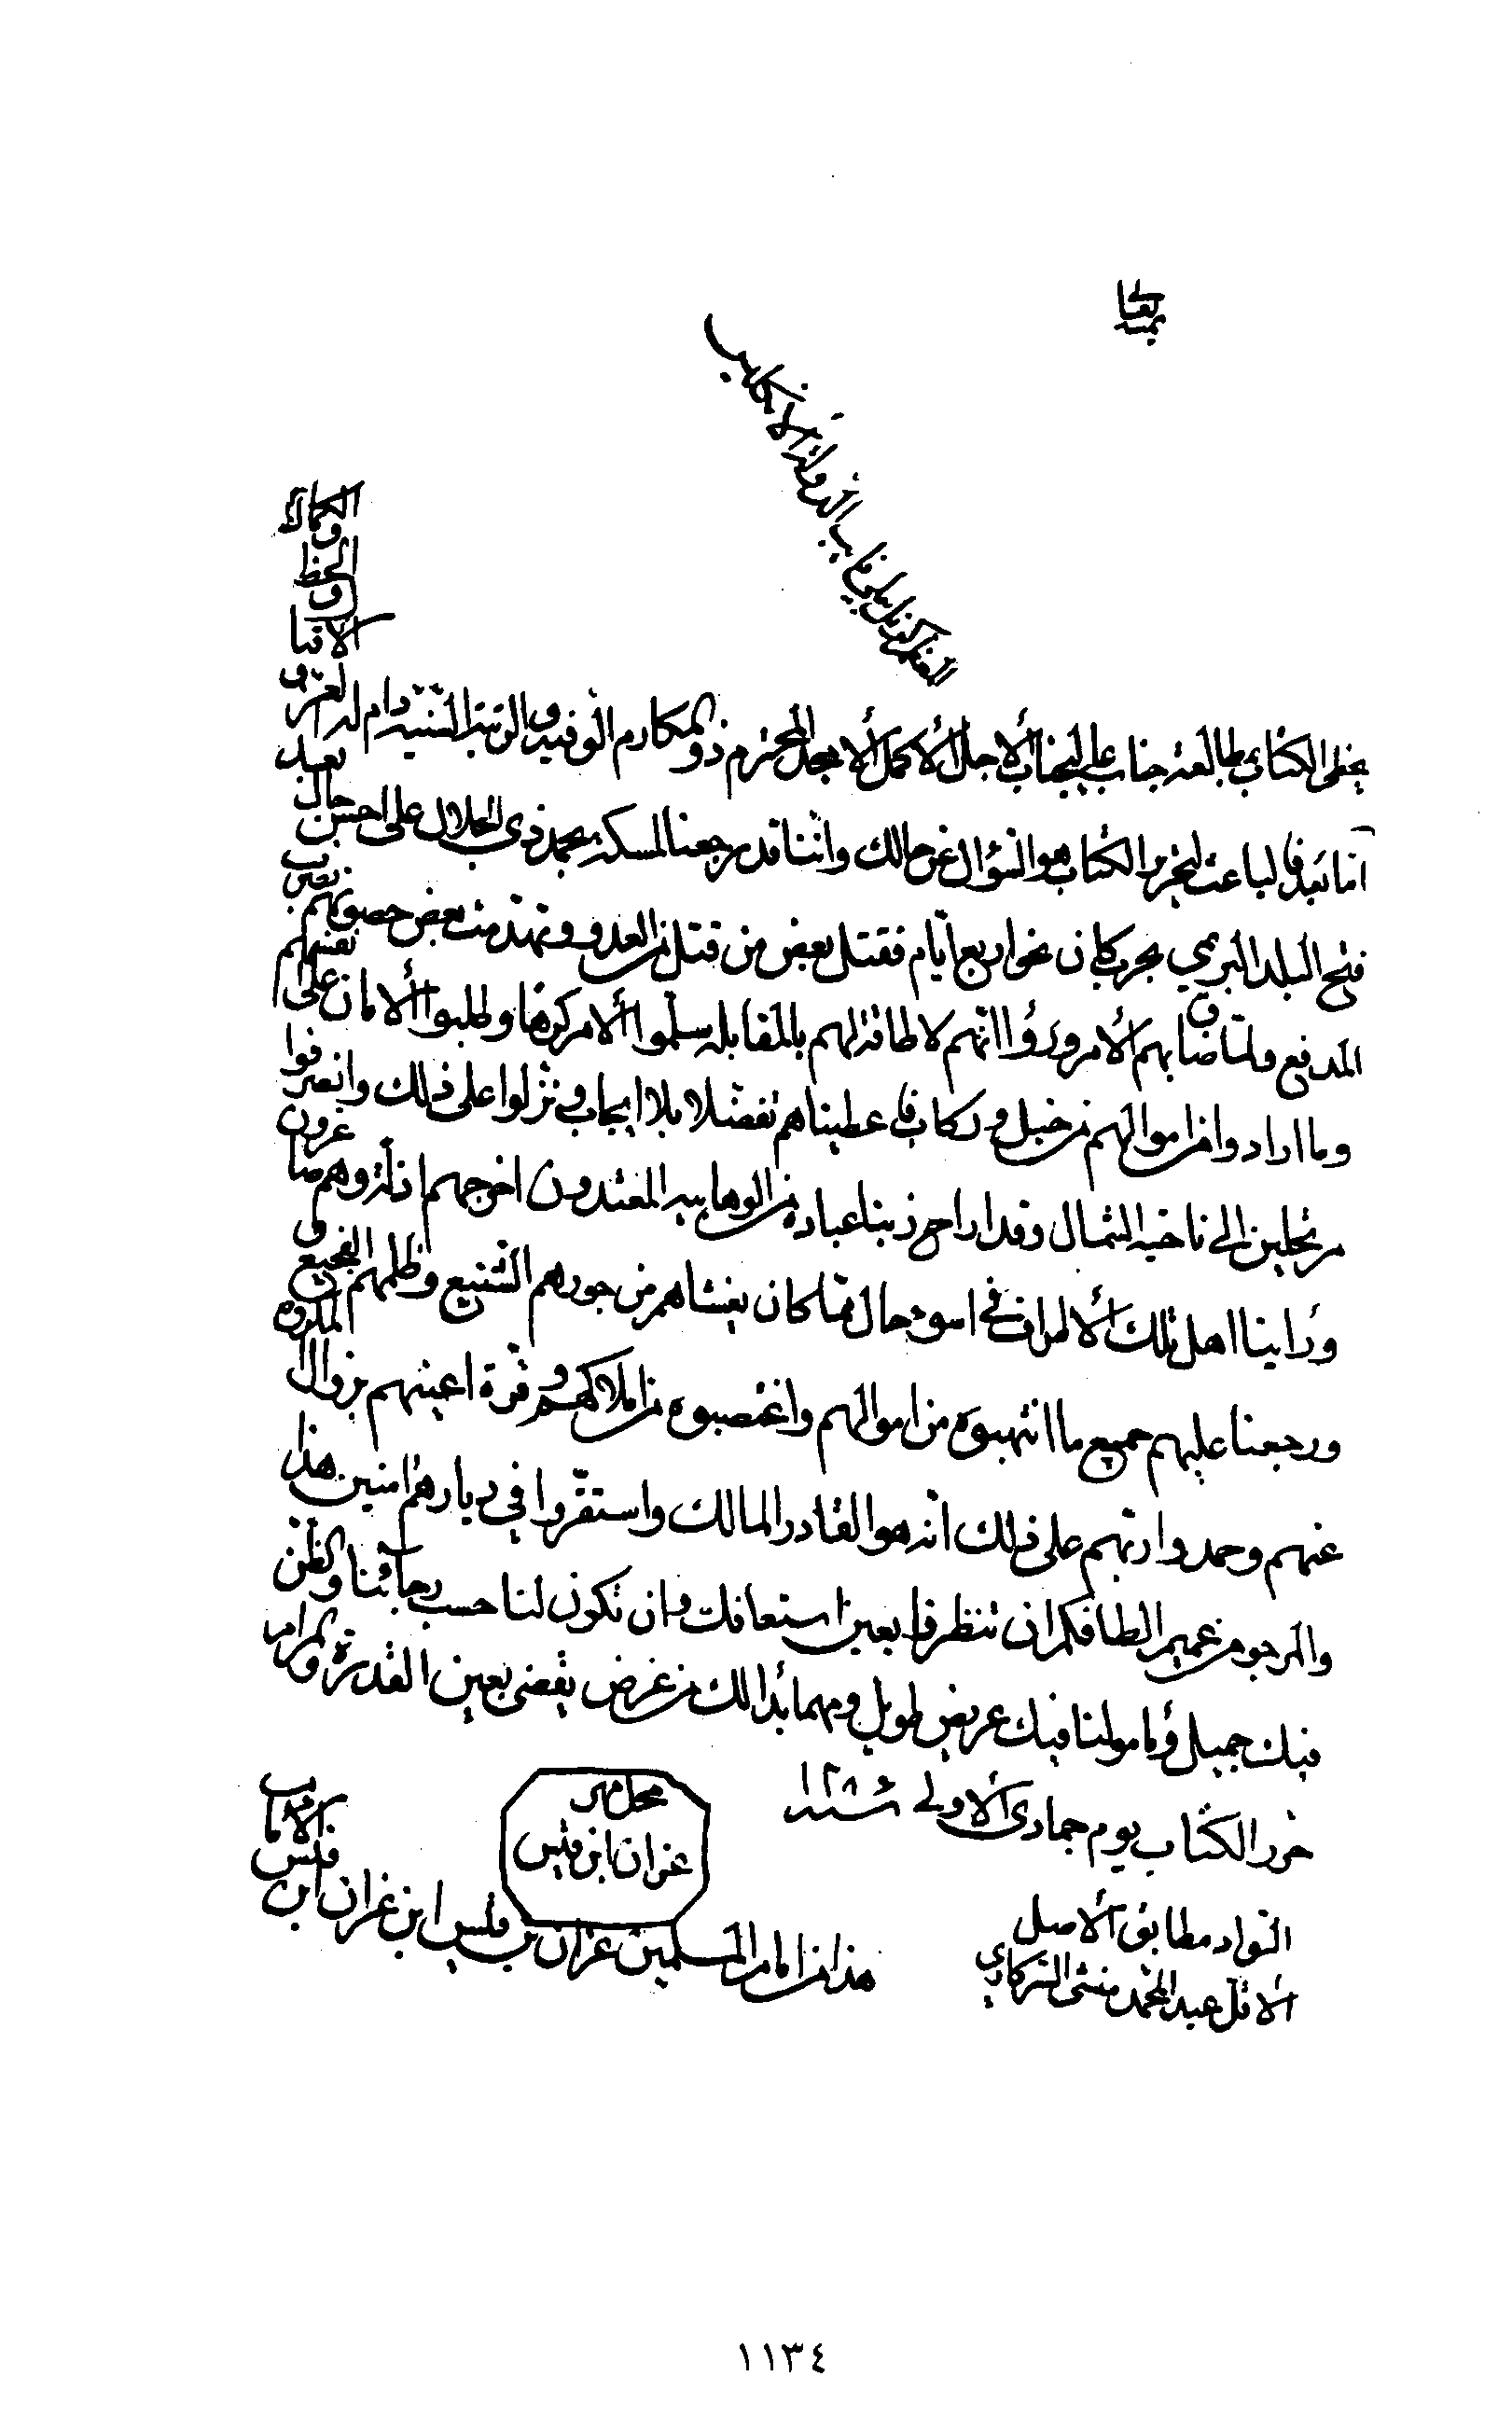 بمنه تعالى
يحظى الكتاب بمطالعة جناب عالي الجناب الأجل الأكمل الأمجد المحترم ذو المكارم الوفيه والرتبة السنيه دام له العز و الاقبال و الحظ و الكمال
اما بعد فالباعث لتحرير الكتاب هو السؤال عن حالك واننا قد رجعنا لمسكد بحمد ذي الجلال على احسن حال بعد
فتح البلد البريمي بحرب كان نحو اربع ايام فقتل بعض من قتل من العدو وتهدمت بعض حصونهم بضرب
المدفع ولما ضاق بهم الأمر ورؤا انهم لا طاقة لهم بالمقابله سلموا الأمر كرها وطلبوا الأمان على انفسهم
وما ارادوا من اموالهم من خيل وركاب فاعطيناهم تفضلا بلا ايجاب ونزلوا على ذلك وانصرفوا
مرتحلين الى ناحية الشمال وقد اراح ربنا عباده من الوهابيه المعتدون اخرجهم اذلة وهم صاغرون
ورأينا اهل تلك الأطراف في اسوء حال مما كان يغشاهم من جورهم الشنيع وظلمهم الفجيع و
ورجعنا عليهم جميع ما انتهبوه من اموالهم واغتصبوه من املاكهم و قرة اعينهم بزوال المكروه
عنهم وحمدوا ربهم على ذلك انه هو القادر المالك واستقروا في ديارهم امنين هذا
والمرجو من عميم الطافكم ان تنظرنا بعين استعافك وان تكون لنا حسب رجآئنا و الظن
فيك جميل ومامولنا فيك عريض طويل ومهما بدا لك من غرض يقضى بعين القدرة والمرام
حرر الكتاب يوم جمادى الأولى ٤ سنة ١٢٨٦
محل مهر
عزان ابن قيس
هذا من امام المسلمين عزان بن قيس ابن عزان ابن قيس الامام
السواد مطابق الأصل
الأقل عبد المحمد منشي السركاري
١١٣٤